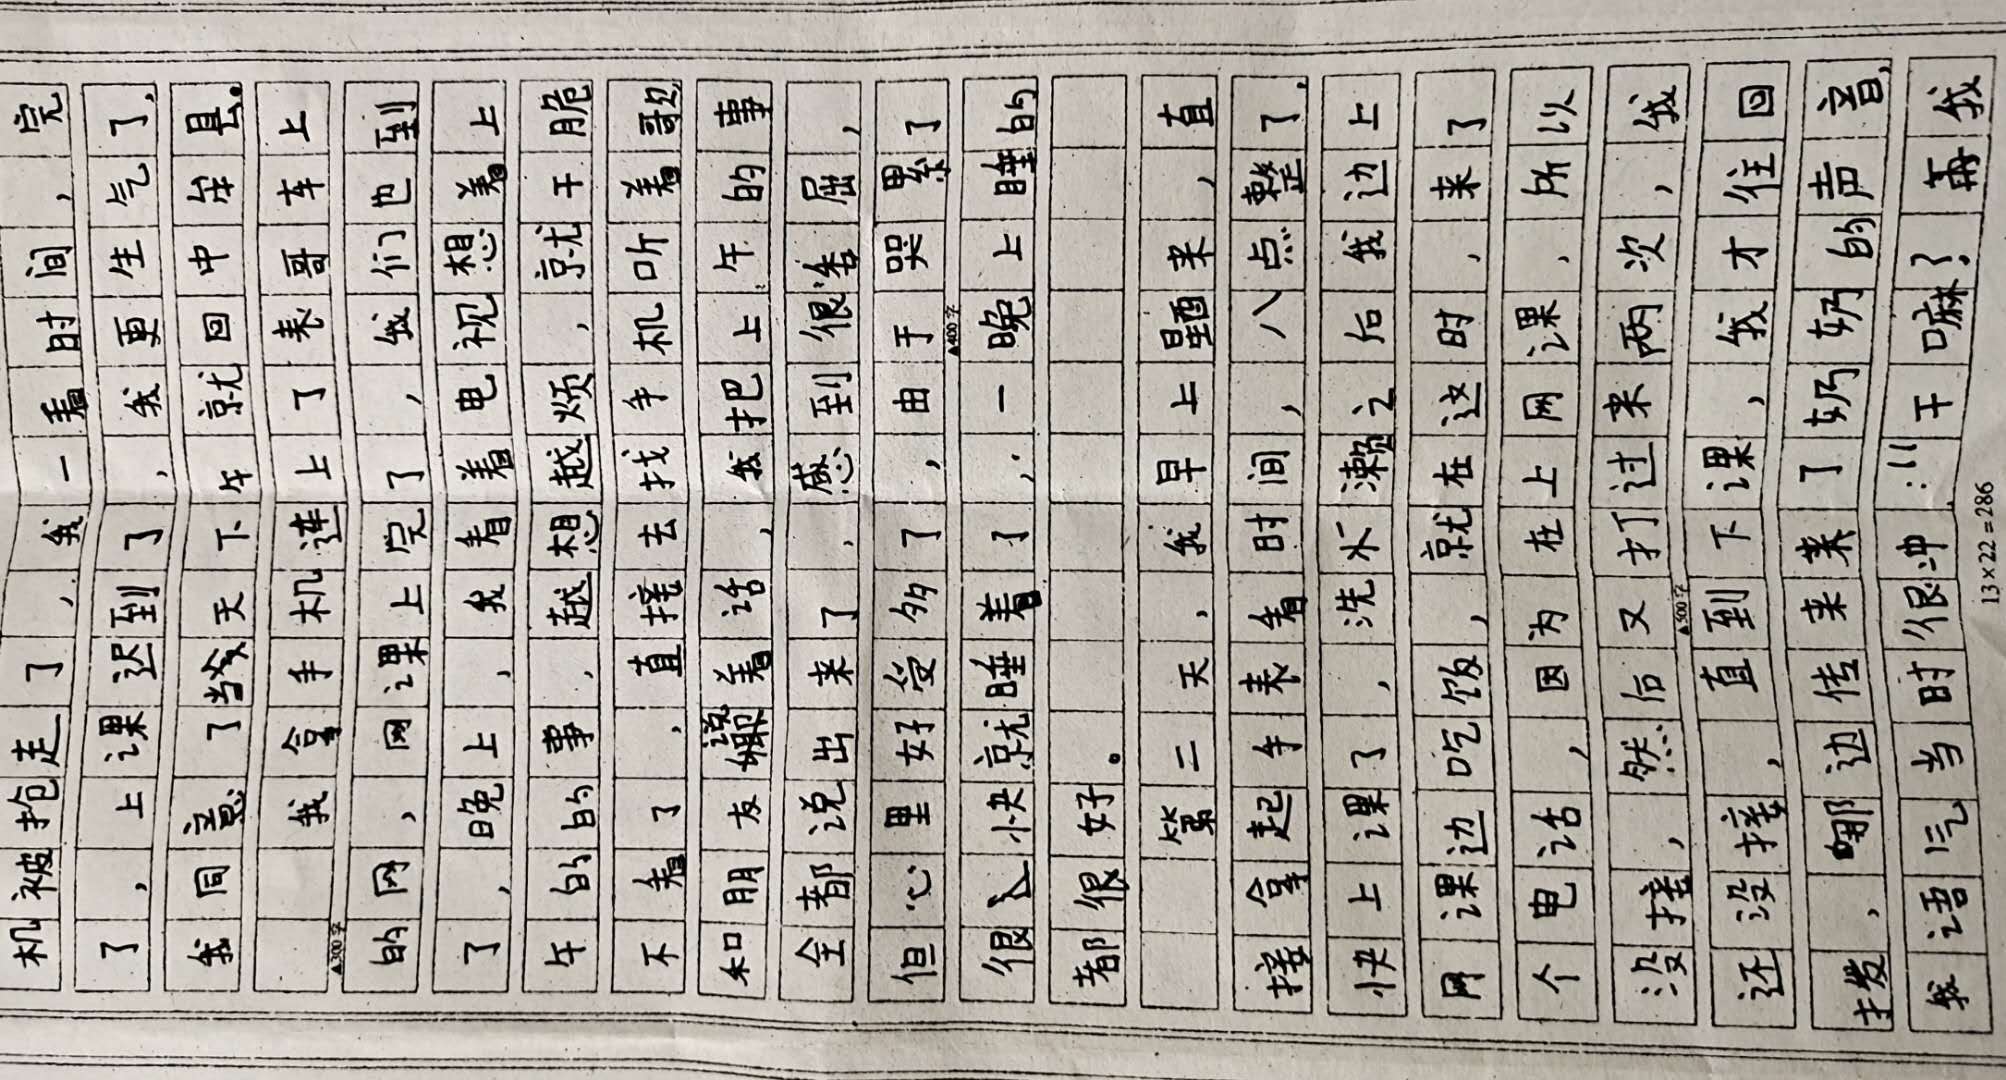 机被抢走了,我一看时间,完
了,上课迟到了,我更生气了,
我同意了当天下午就回中牟县。
我拿手机连上了表哥车上
▲300字
的网,网课上完了,我们也到
了,晚上,我看着电视想着上
午的的事,越想越烦,就干脆
不看了,直接去找手机听着歌
和朋友说着话,我把上午的事
全都说出来了,感到很委屈,
但心里好受多了,由于哭累了
▲400字
很快就睡着了,一晚上睡的
都很好。
第二天,我早上醒来,直
接拿起手表看时间,八点整了,
快上课了,洗水漱之后我边上
网课边吃饭,就在这时,来了
个电话,因为在上网课,所以
没接,然后又打过来两次,我
▲500字
还没接,直到下课,我才往回
拨,哪边传来来了奶奶的声音,
我语气当时很冲:"干嘛?再我
13×22=286